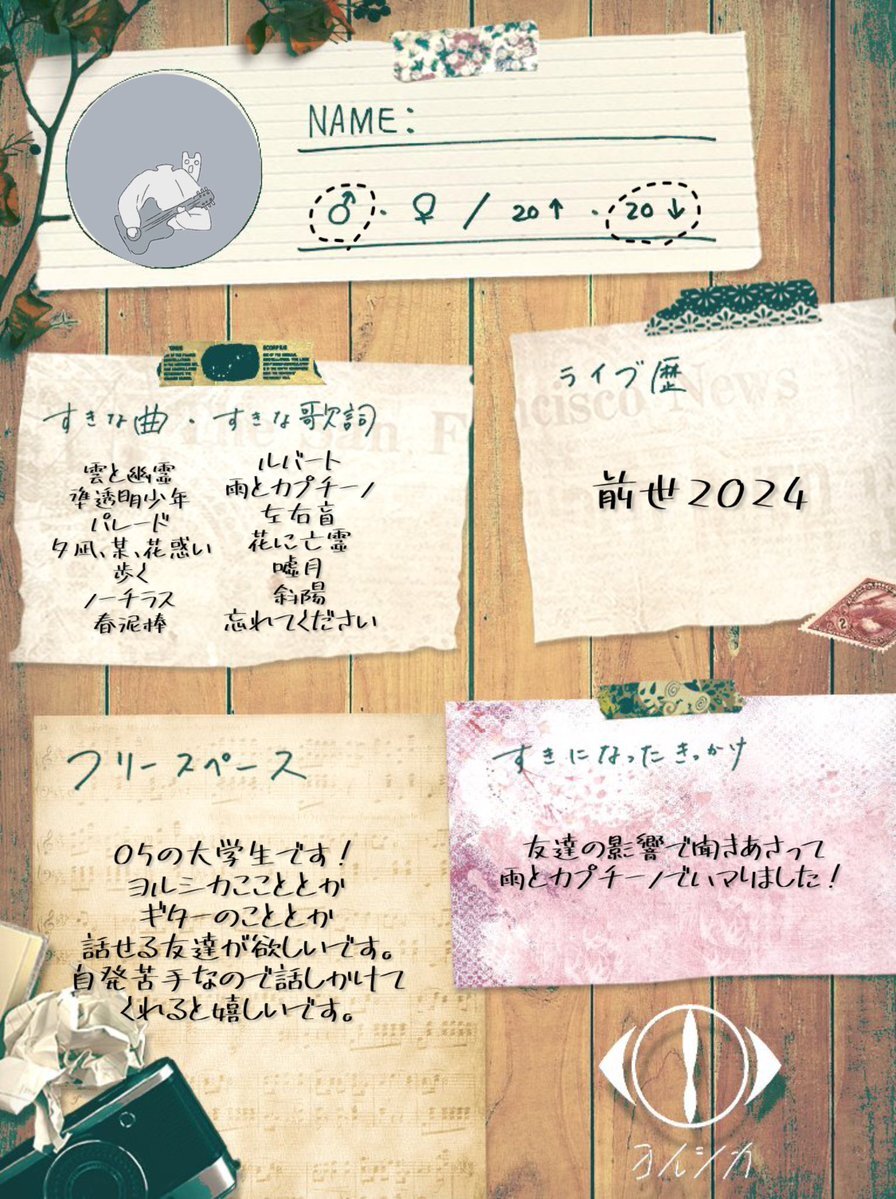 NAME:
♂・♀/20↑・20↓
すきな曲・すきな歌詞
雲と幽霊
準透明少年
パレード
夕凪、某、花惑い
歩く
ノーチラス
春泥棒
ルバート
雨とカプチーノ
左右盲
花に亡霊
嘘月
斜陽
忘れてください
ライブ歴
前世2024
フリースペース
05の大学生です！
ヨルシカこととか
ギターのこととか
話せる友達が欲しいです。
自発苦手なので話しかけて
くれると嬉しいです。
すきになったきっかけ
友達の影響で聞きあさって
雨とカプチーノでハマりました！
ヨルシカ